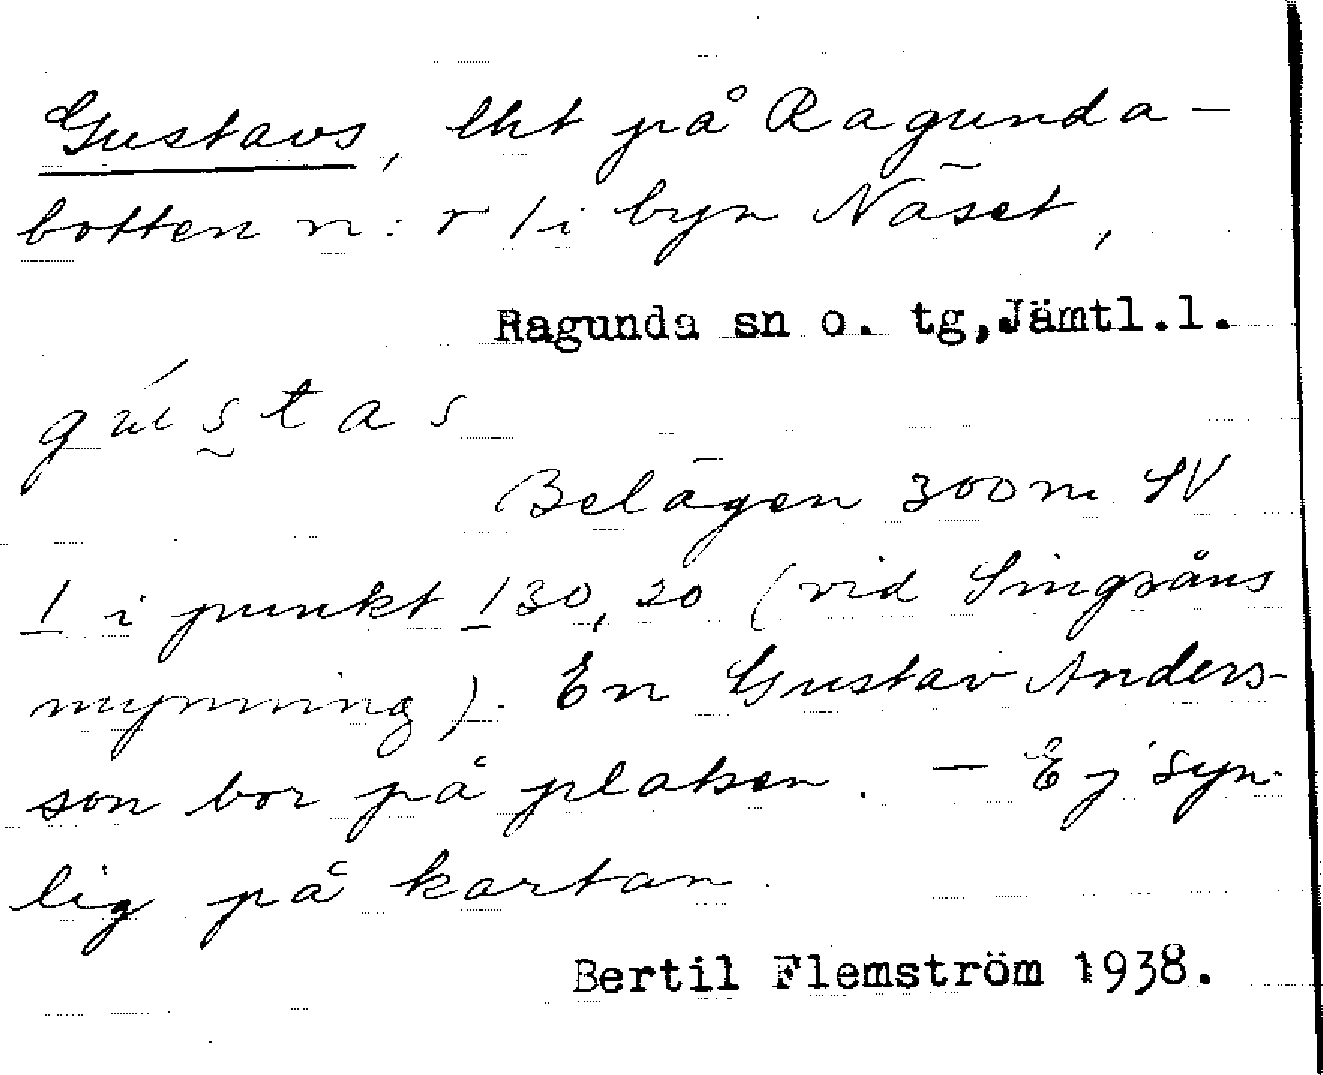 Gustavs, lht på Ragunda-
botten n:r 1 i byn Näset,
Ragunda sn o. tg,Jämtl.l.
Belägen 300 m SV
1 i punkt 130,20 (vid Singsåns
mynning). En Gustav Anders-
son bor på platsen. - Ej syn-
lig på kartan.
Bertil Flemström 1938.